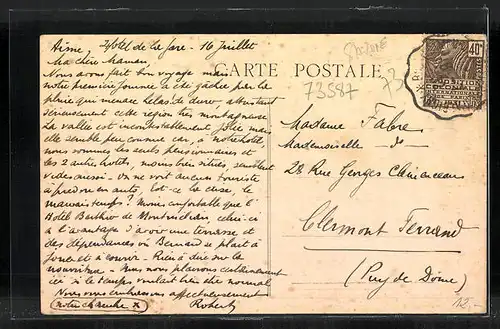 Aime, Hôtel de la Gare - 16 Juillet
Ma chère Maman,
Nous avons fait bon voyage mais
notre première journée a été gâchée par la
pluie qui menace hélas de durer, attristant
sérieusement cette région très montagneuse
La vallée est incontestablement jolie mais
elle semble peu connue car, à notre hôtel
nous sommes les seuls pensionnaires et
les 2 autres hôtels, moins bien situés semblent
vides aussi - On ne voit aucun touriste
à pied ou en auto, Est-ce la crise, le
mauvais temps? Moins confortable que l'
Hôtel Berthier de Montrichard, celui-ci
a l'avantage d'avoir une terrasse et
des dépendances où Bernard se plaît à
jouer et à courir - Rien à dire sur la
nourriture - Nous nous plairons certainement
ici si le temps voulait bien être normal
Nous vous embrassons affectueusement
notre chambre X
Robert
CARTE POSTALE
73587
40c
EXPOSITION
COLONIALE
INTERNATIONALE
Madame Fabre
Mademoiselle do
28 Rue Georges Clemenceau
Clermont Ferrand
(Puy de Dôme)
12.-